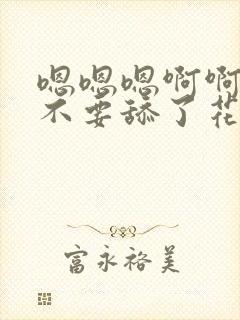 嗯嗯嗯啊啊
不要舔了花
富永裕美